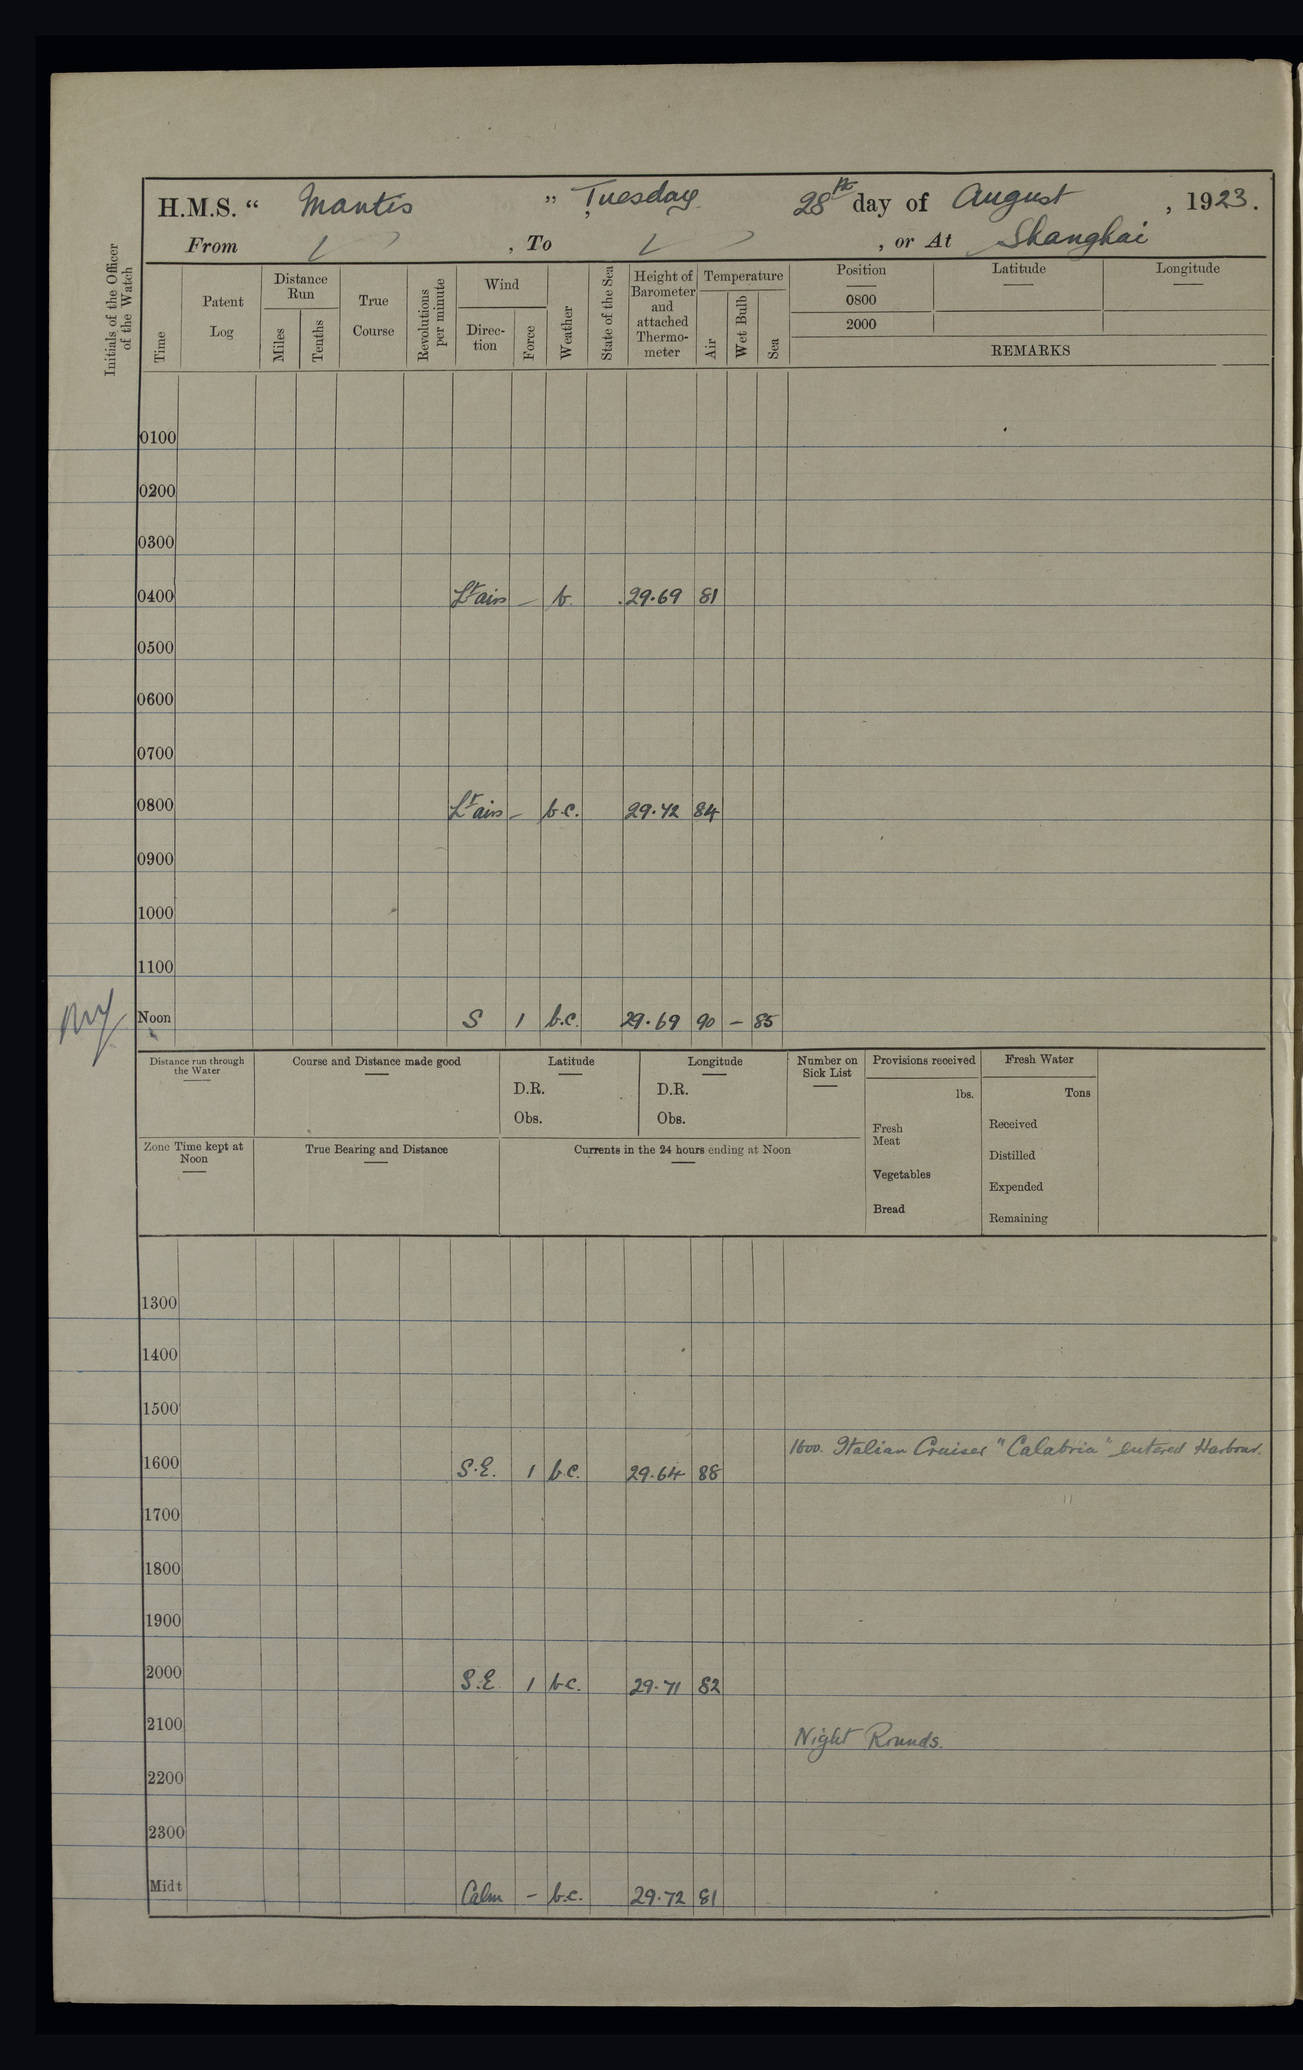 H.M.S. “ Mantis ” Tuesday 28th day of August , 1923.
From , To , or At Shanghai
Initials of the Officer of the Watch
Time
Patent Log
Distance Run
Miles
Tenths
True Course
Revolutions per minute
Wind
Direc-tion
Force
Weather
State of the Sea
Height of Barometer and attached Thermo-meter
Temperature
Air
Wet Bulb
Sea
Position Latitude Longitude
0800
2000
REMARKS
0100
0200
0300
0400 Lt airs – b. 29.69 81
0500
0600
0700
0800 Lt airs – b.c. 29.72 84
0900
1000
1100
Noon S 1 b.c. 29.69 90 – 85
Distance run through the Water
Course and Distance made good
Latitude
D.R.
Obs.
Longitude
D.R.
Obs.
Number on Sick List
Provisions received
lbs.
Fresh Meat
Vegetables
Bread
Fresh Water
Tons
Received
Distilled
Expended
Remaining
Zone Time kept at Noon
True Bearing and Distance
Currents in the 24 hours ending at Noon
1300
1400
1500
1600. Italian Cruiser "Calabria" entered Harbour.
1600 S.E. 1 b.c. 29.64 88
1700
1800
1900
2000 S.E. 1 b.c. 29.71 82
2100 Night Rounds.
2200
2300
Midt Calm – b.c. 29.72 81